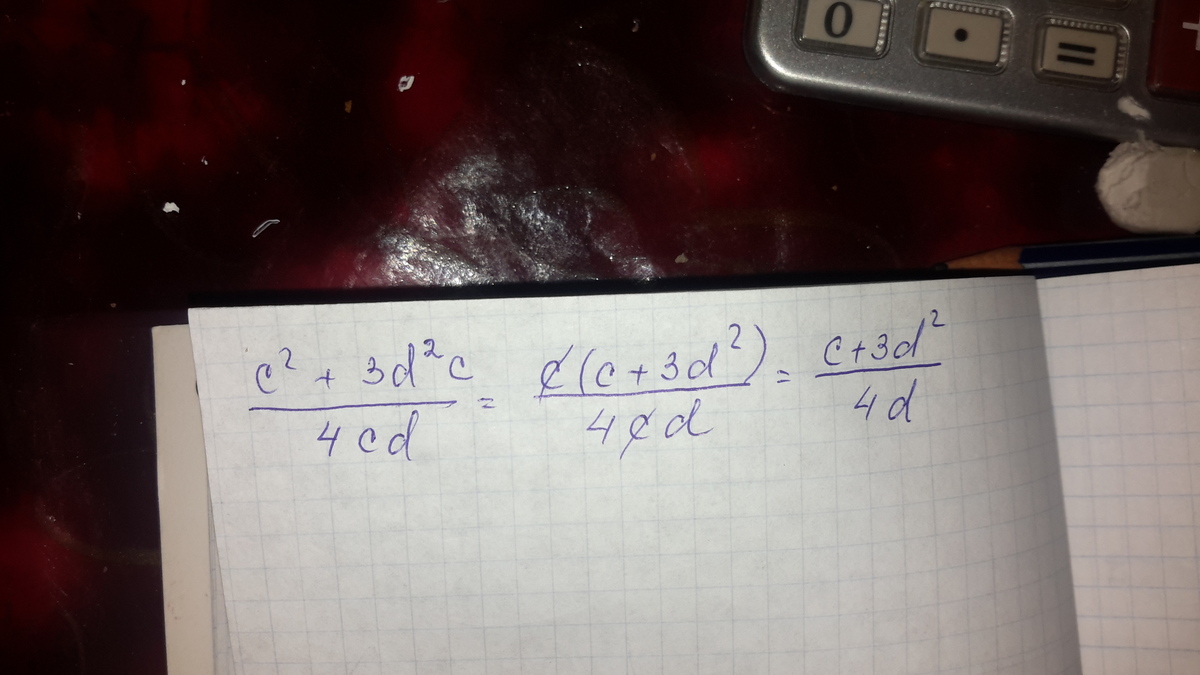 0 . = +
(c² + 3d²c)/(4cd) = (c(c + 3d²))/(4cd) = (c+3d²)/(4d)